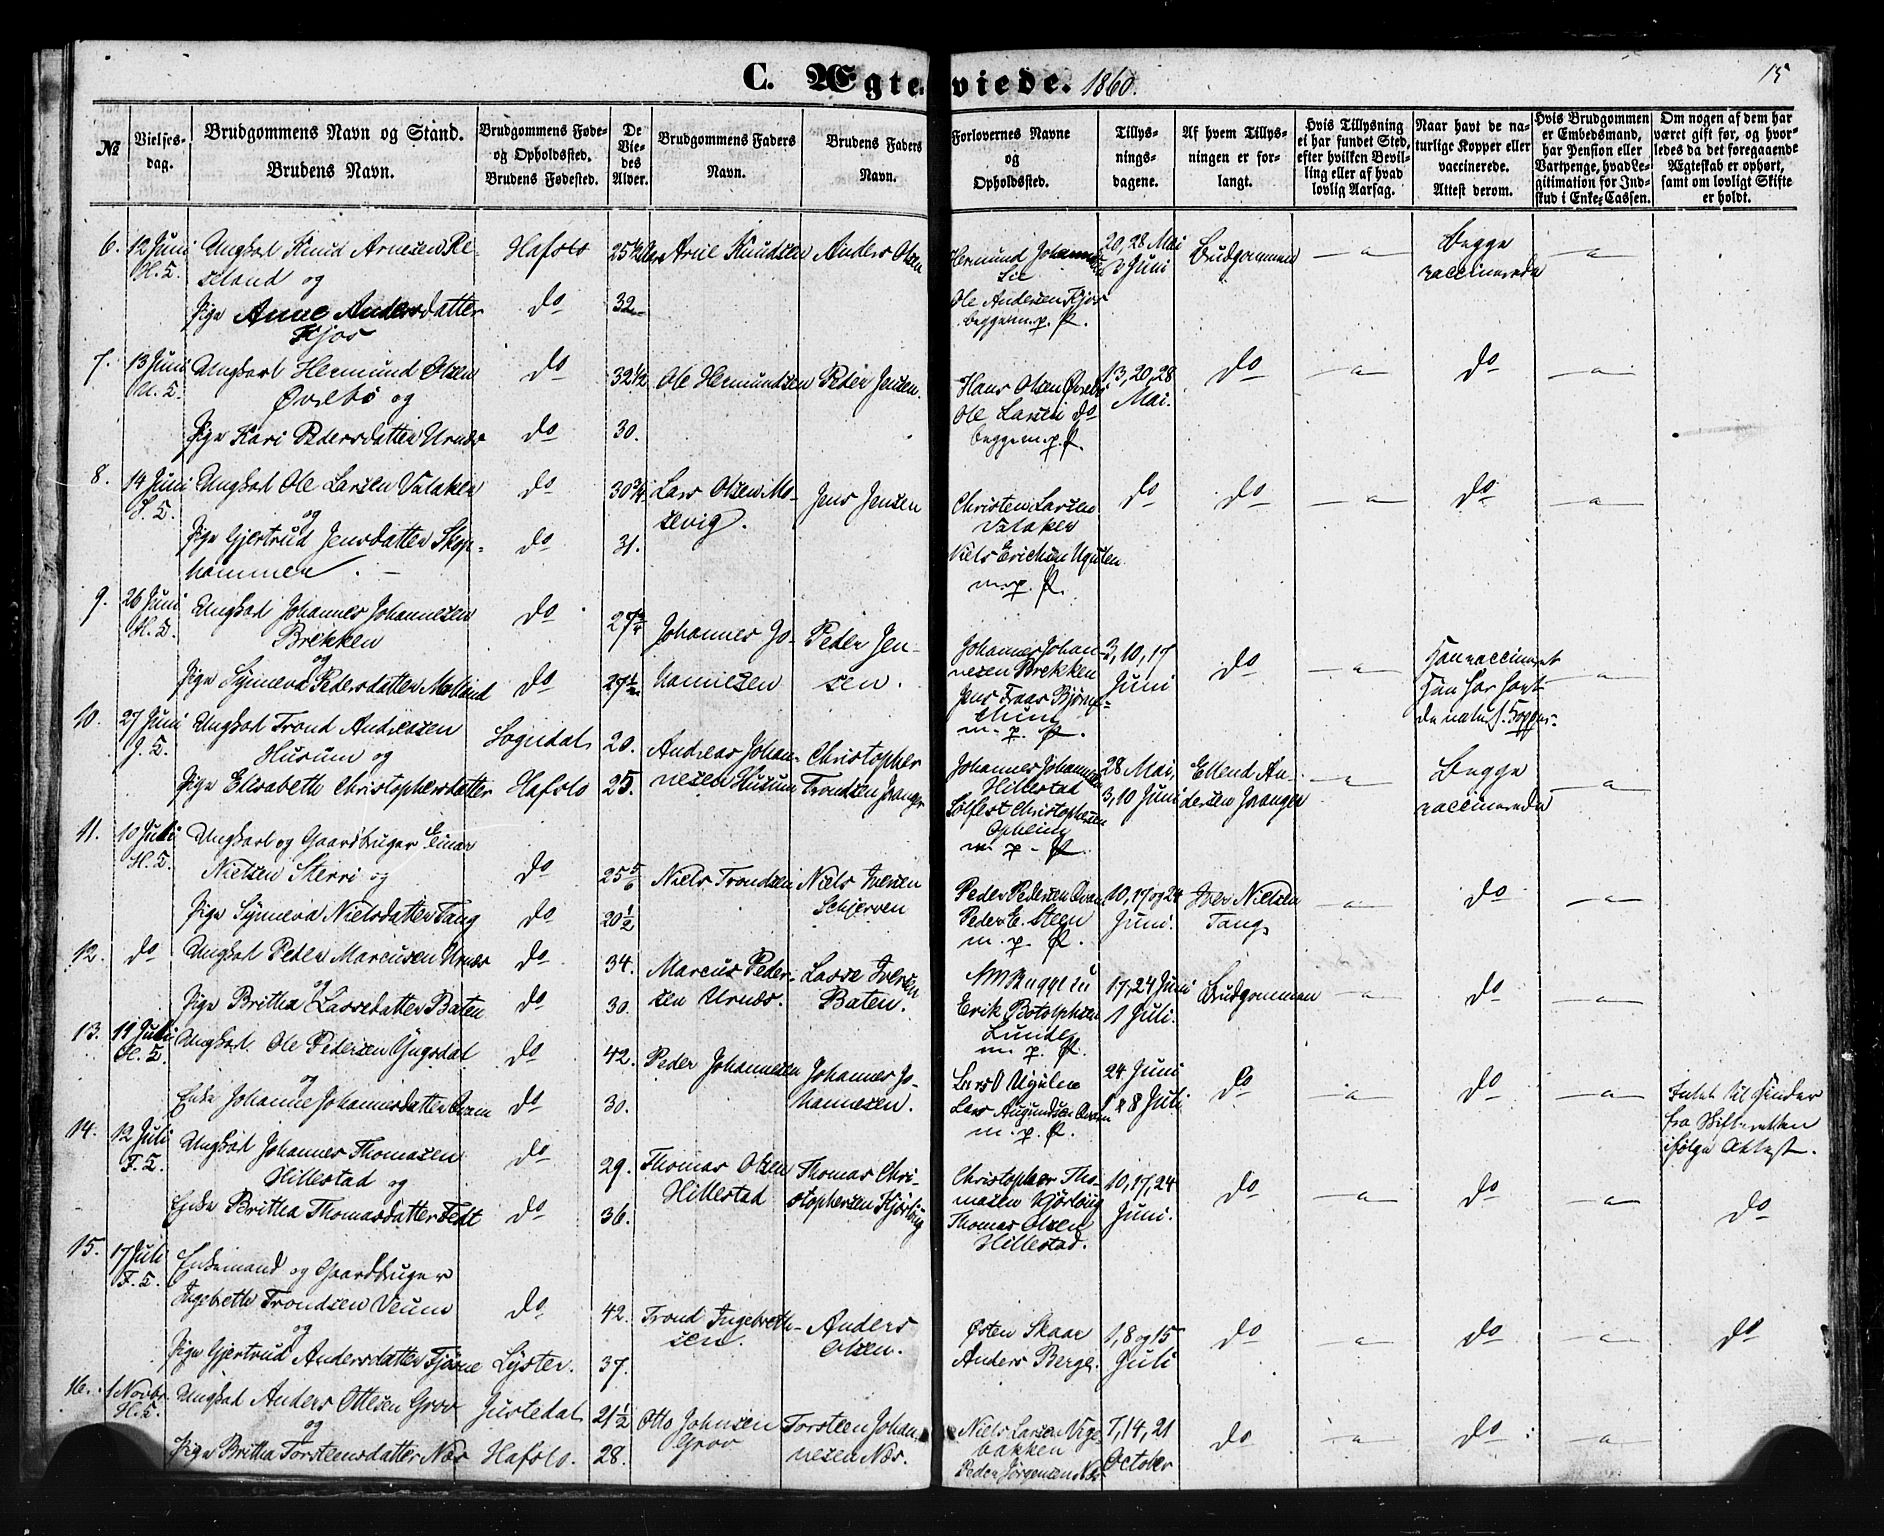 C. Ægteviede. 1860. 15
№
Vielses-
dag.
Brudgommens Navn og Stand.
Brudens Navn.
Brudgommens Føde-
og Opholdssted.
Brudens Fødested.
De
Vie-
des
Alder.
Brudgommens Faders
Navn.
Brudens Faders
Navn.
Forlovernes Navne
og
Opholdssted.
Tillys-
nings-
dagene.
Af hvem Tillys-
ningen er for-
langt.
Hvis Tillysning
ei har fundet Sted,
efter hvilken Bevil-
ling eller af hvad
lovlig Aarsag.
Naar havt de na-
turlige Kopper eller
vaccinerede.
Attest derom.
Hvis Brudgommen
er Embedsmand,
har Pension eller
Vartpenge, hvad Le-
gitimation for Ind-
skud i Enke-Cassen.
Om nogen af dem har
været gift før, og hvor-
ledes da det foregaaende
Ægteskab er ophørt,
samt om lovligt Skifte
er holdt.
6. 12 Juni
Ungkarl Knud Arnesen Re-
stand og
Pige Anne Andersdatter
Kjos
Hafslo
do
25 1/2
32
Arne Knudsen
Anders Olsen
Hermund Johannes
Lie
Ole Andersen Kjos
begge m. p. P.
20, 28 Mai
3 Juni
Brudgommen
Begge
vaccinerede
7. 13 Juni
Ungkarl Hermund Olsen
Øvrebø og
Pige Kari Pedersdatter Urnæs
do
do
32 1/2
30.
Ole Hermundsen
Peder Jensen.
Hans Olsen Øvrebø
Ole Larsen do
begge m. p. P.
13, 20, 28
Mai.
do
do
8. 14 Juni
Ungkarl Ole Larsen Valaker
og
Pige Gjertrud Jensdatter Skop-
hammen
do
do
30 3/4
31.
Lars Olsen Mo-
sevig.
Jens Jensen
Christen Larsen
Valaker
Niels Erichsen Ugulen
m. p. P.
do
do
do
9. 26 Juni
Ungkarl Johannes Johannesen
Brekken
og
Pige Synneva Pedersdatter Molland
do
do
Johannes Jo-
hannesen
Peder Jen-
sen.
Johannes Johan-
nesen Brekken
m. p. P.
3, 10, 17
Juni
do
Han vaccineret
Hun har havt
de naturl. Kopper.
10. 27 Juni
Ungkarl Trond Andreasen
Husum og
Pige Elisabeth Christophersdatter
Sogndal
Hafslo
20.
25.
Andreas Johan-
nesen Husum
Christopher
Trondsen
Johannes Johannesen
Hillestad
Christophersen
Opheim
m. p. P.
28 Mai,
3, 10 Juni
Ellend An-
dersen
Begge
vaccinerede
11. 10 Juli
Ungkarl og Gaardbruger Einar
Nielsen Sterri og
Pige Synneva Nielsdatter Tang
do
do
25 5/6
20 1/2
Niels Trondsen
Niels Iversen
Schjerven
Peder Pedersen
Peder E. Steen
m. p. P.
10, 17 og 24
Juni.
Iver Nielsen
Tang
do
12. do
Ungkarl Peder Marcusen Urnæs
og
Pige Britha Lassedatter Baten
do
do
34.
30.
Marcus Peder-
sen Urnæs.
Lasse Iversen
Baten.
Erik Botolphsen
Lunde
m. p. P.
17, 24 Juni
1 Juli.
Brudgommen
do
13. 11 Juli
Ungkarl Ole Pedersen
og
Enke Johanne Johannesdatter
do
do
42.
30.
Peder Johannesen
Johannes Jo-
hannesen.
Lars
m. p. P.
24 Juni
1 & 8 Juli
do
do
Intet til Hinder
fra Skifteretten
ifølge Attest.
14. 12 Juli
Ungkarl Johannes Thomasen
Hillestad og
Enke Britha Thomasdatter
do
do
29.
36.
Thomas Olsen
Hillestad
Thomas Chri-
stophersen
Christopher Tho-
masen
Thomas Olsen
Hillestad.
10, 17, 24
Juni.
do
do
do
15. 17 Juli
Enkemand og Gaardbruger
Ingebreth Trondsen Veum
og
Pige Gjertrud Andersdatter
do
Lyster.
42.
37.
Trond Ingebreth-
sen.
Anders
Olsen.
Østen Skaar
Anders Berge.
1, 8 og 15
Juli
do
do
do
16. 1 Novbr.
Ungkarl Anders Ottesen Grov
og
Pige Britha Torstensdatter Næs
Justedal
Hafslo.
21 1/2
28.
Otto Johnsen
Grov
Torsten Johan-
nesen Næs.
Niels Larsen
bakken
Peder Jørgensen Næs
7, 14, 21
October
do
do